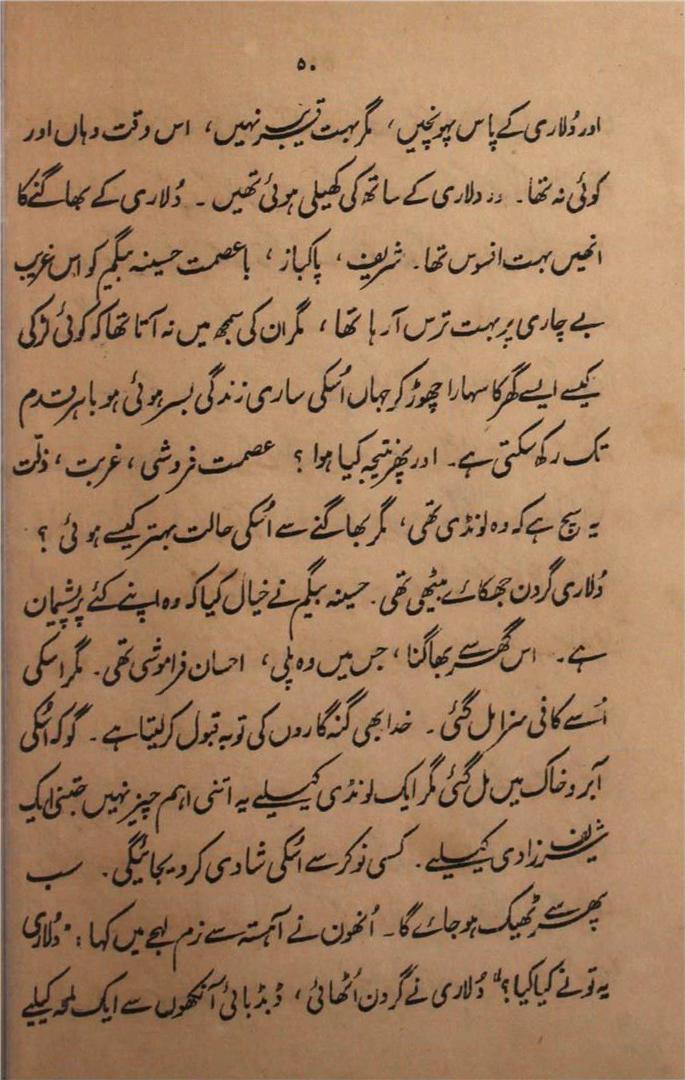 ۵۰
اور دُلاری کے پاس پہونچیں، مگر بہت قریب نہیں، اس وقت وہاں اور
کوئی نہ تھا۔ وہ دلاری کے ساتھ کی کھیلی ہوئی تھیں۔ دُلاری کے بھاگنے کا
انھیں بہت افسوس تھا۔ شریف، پاکباز، باعصمت حسینہ بیگم کو اس غریب
بے چاری پر بہت ترس آرہا تھا، مگر ان کی سمجھ میں نہ آتا تھا کہ کوئی لڑکی
کیسے ایسے گھر کا سہارا چھوڑ کر جہاں اُسکی ساری زندگی بسر ہوئی ہو باہر قدم
تک رکھ سکتی ہے۔ اور پھر نتیجہ کیا ہوا؟ عصمت فروشی، غربت، ذلّت
یہ سچ ہے کہ وہ لونڈی تھی، مگر بھاگنے سے اُسکی حالت بہتر کیسے ہوئی؟
دُلاری گردن جھکائے بیٹھی تھی۔ حسینہ بیگم نے خیال کیا کہ وہ اپنے کئے پر پشیمان
ہے۔ اس گھر سے بھاگنا، جس میں وہ پلی، احسان فراموشی تھی۔ مگر اسکی
اُسے کافی سزا مل گئی۔ خدا بھی گنہ گاروں کی توبہ قبول کر لیتا ہے۔ گو کہ اُسکی
آبرو خاک میں مل گئی مگر ایک لونڈی کیلئے یہ اتنی اہم چیز نہیں جتنی ایک
شریف زادی کیلئے۔ کسی نوکر سے اسکی شادی کر دیجائیگی۔ سب
پھر سے ٹھیک ہو جائے گا۔ اُنھوں نے آہستہ سے نرم لہجے میں کہا: "دُلاری
یہ تونے کیا کیا؟" دُلاری نے گردن اُٹھائی، ڈبڈبائی آنکھوں سے ایک لمحہ کیلئے